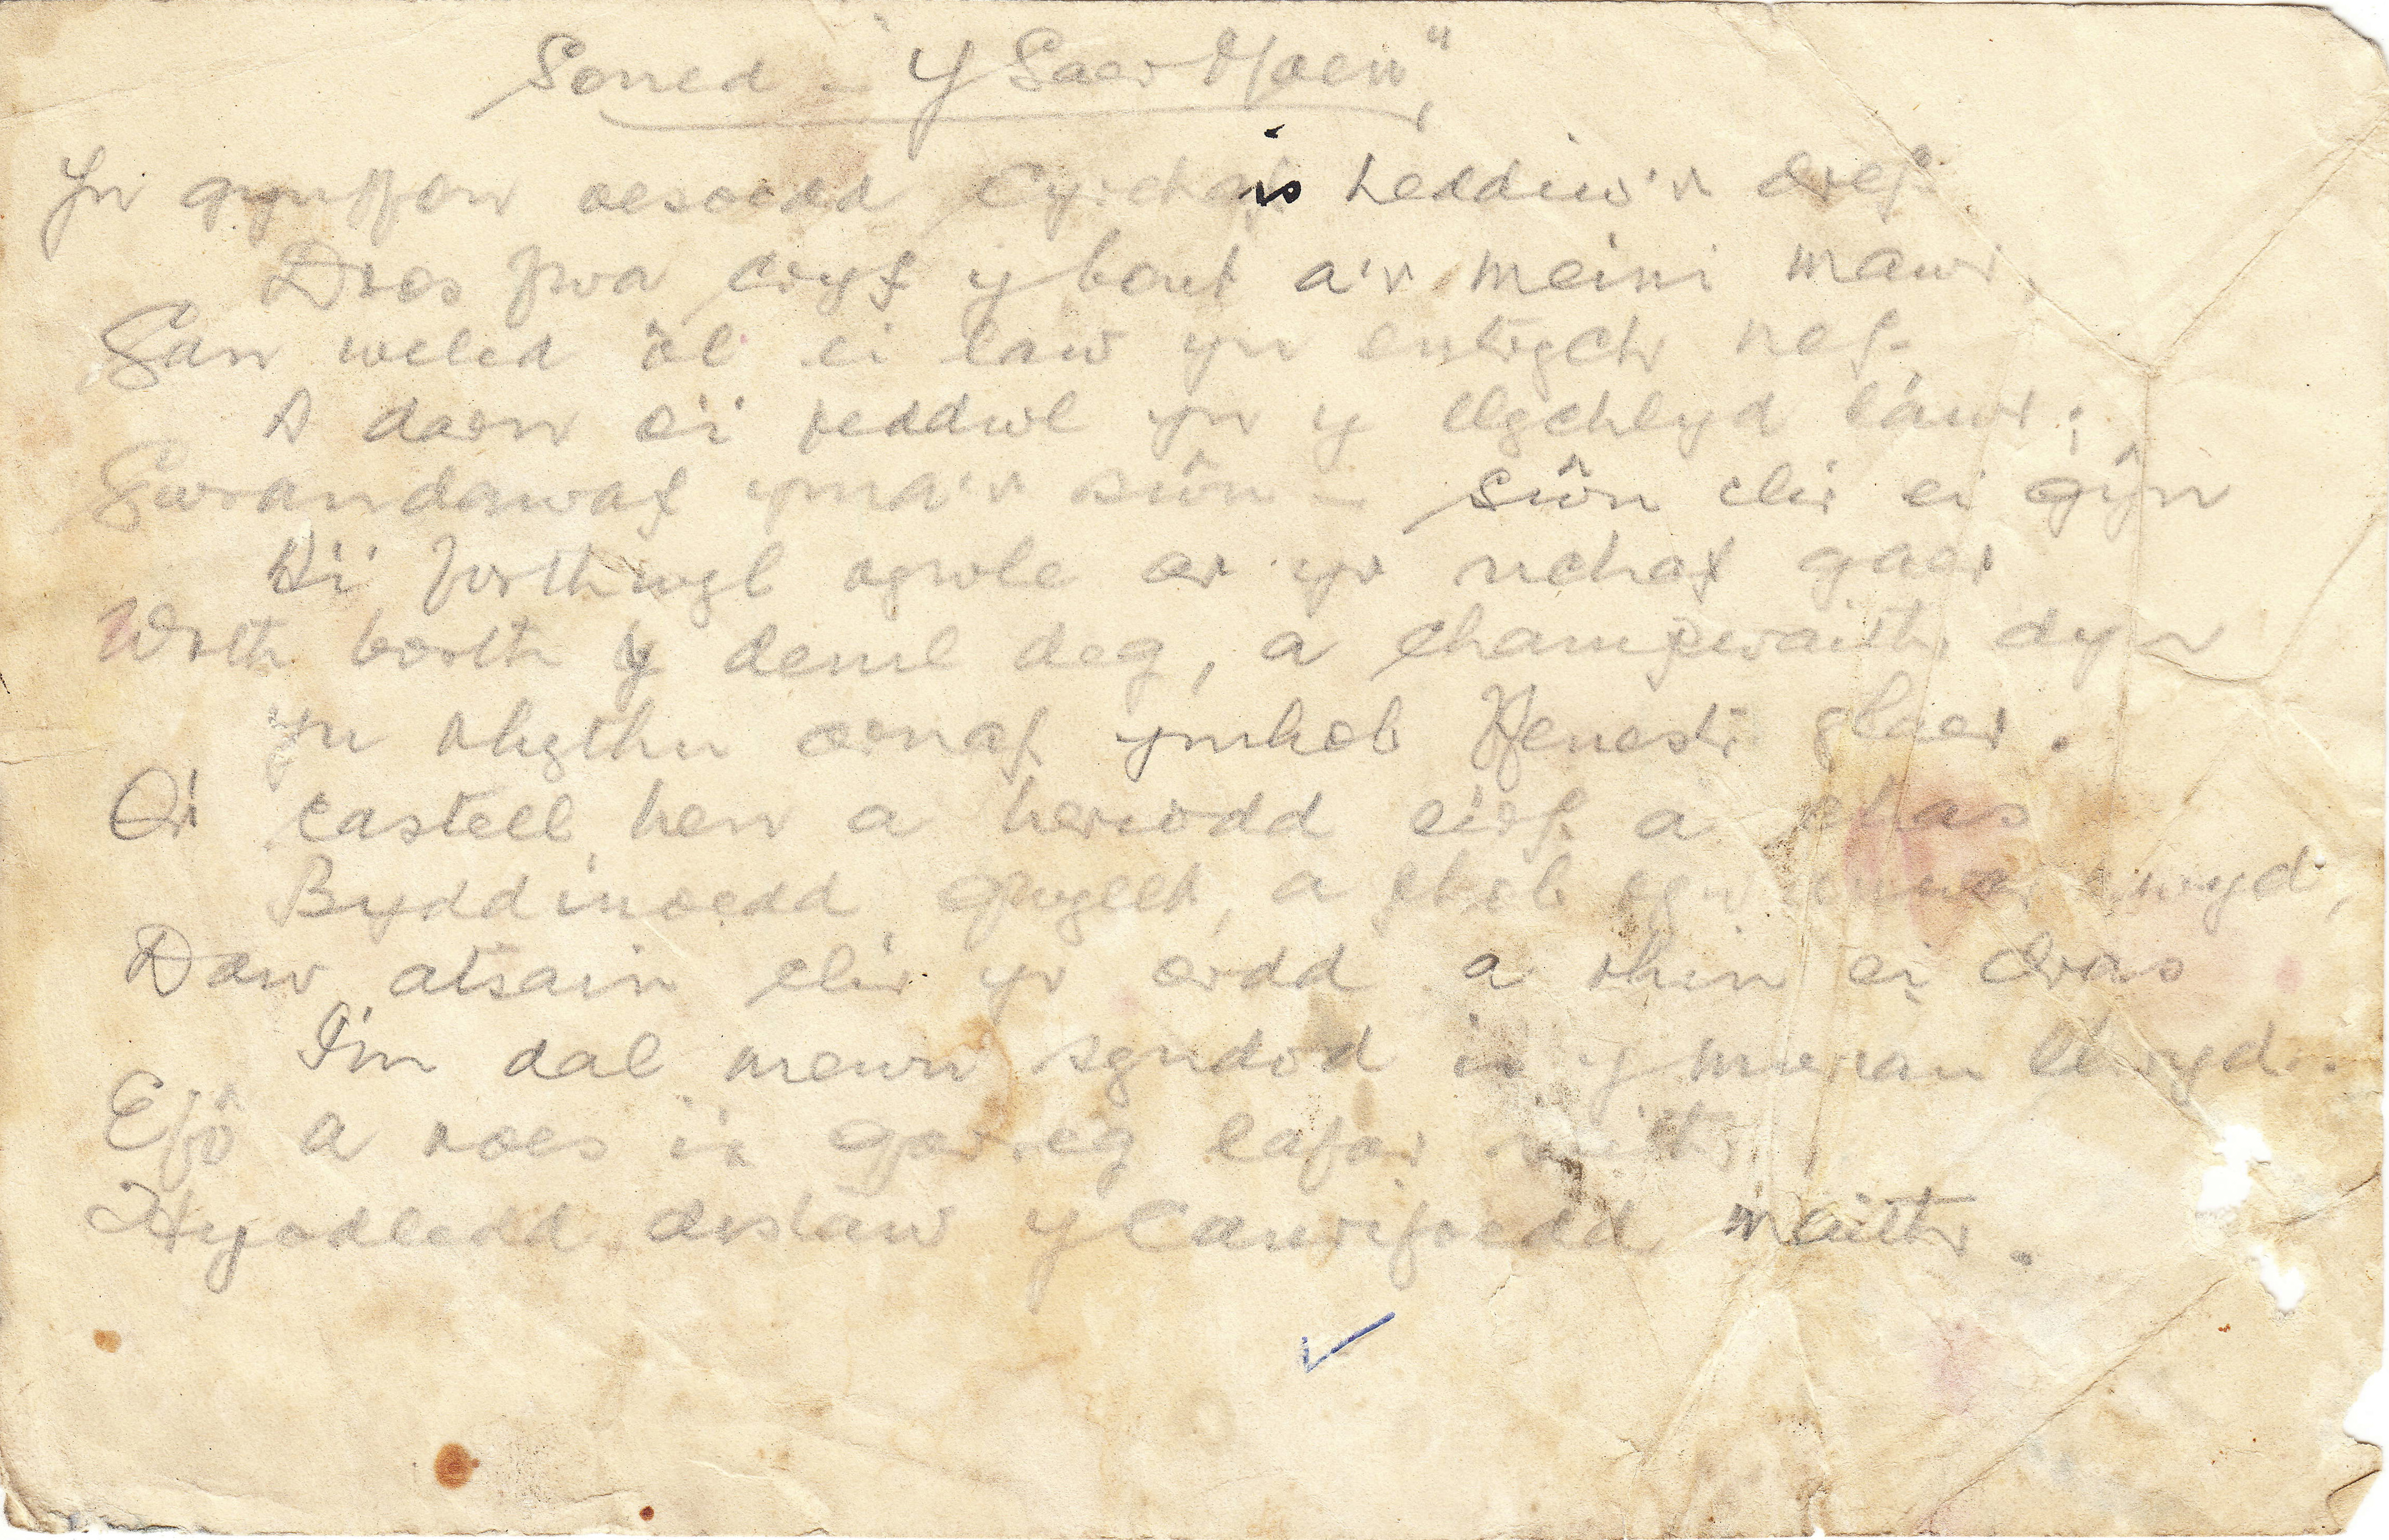 Soned - "Y Saer Maen",
Yn gynffon oesoedd cyrchais heddiw'r dref
Dros fwa cryf y bont a'r meini mawr,
Gan weled ôl ei law yn entrych nef
A darn o'i feddwl yn y llychlyd lawr;
Gwrandawaf yma'r sŵn - sŵn clir ei gŷn
A'i forthwyl acw ar yr uchaf gaer
Wrth borth y deml deg, a champwaith dyn
Yn rhythu arnaf ymhob ffenestr glaer.
O'r castell hen a heriodd eirf a
Byddinoedd gwyllt, a
Daw atsain clir yr ordd a rhin ei dras
I'm dal mewn syndod is y muriau llwyd.
Efô a roes i'r garreg lafar iaith
Hyodledd distaw y canrifoedd maith.